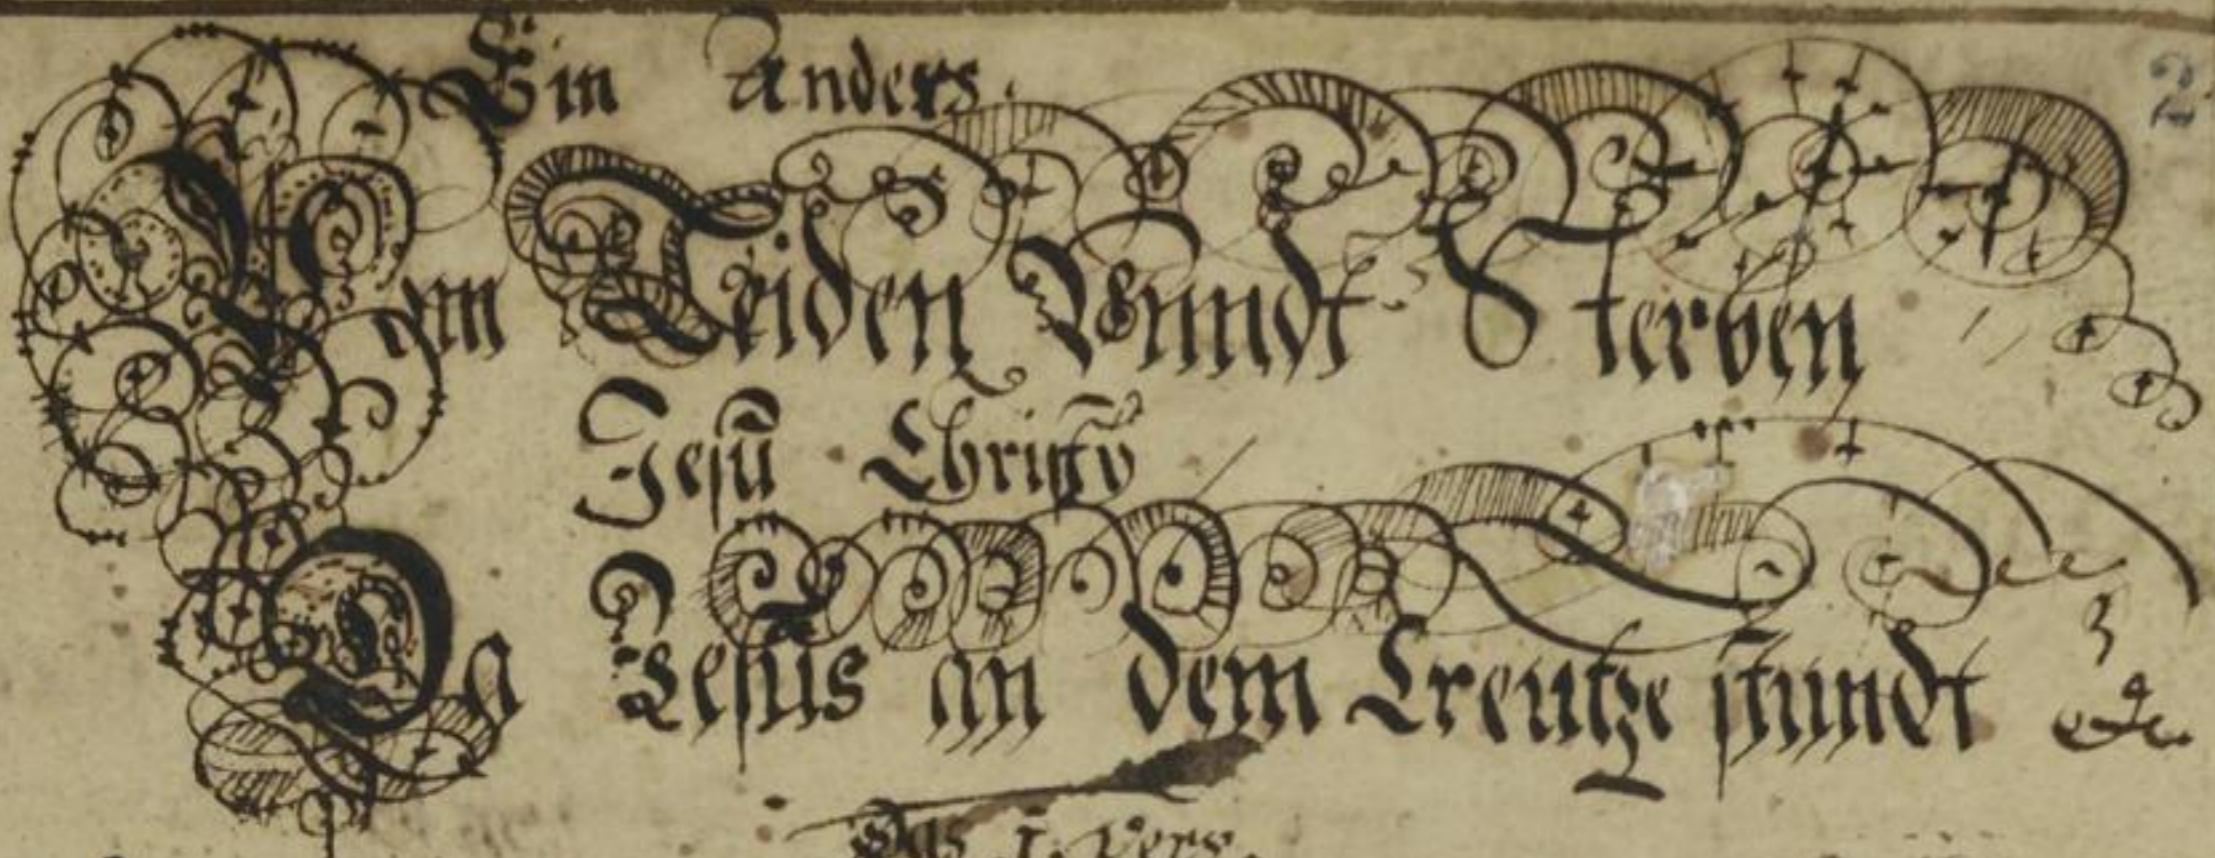 Ein Anders. 2
Vom Leiden Vnndt Sterben
Jesu Christÿ
Da Jesus an dem Creutze stundt
Das 1. Vers.